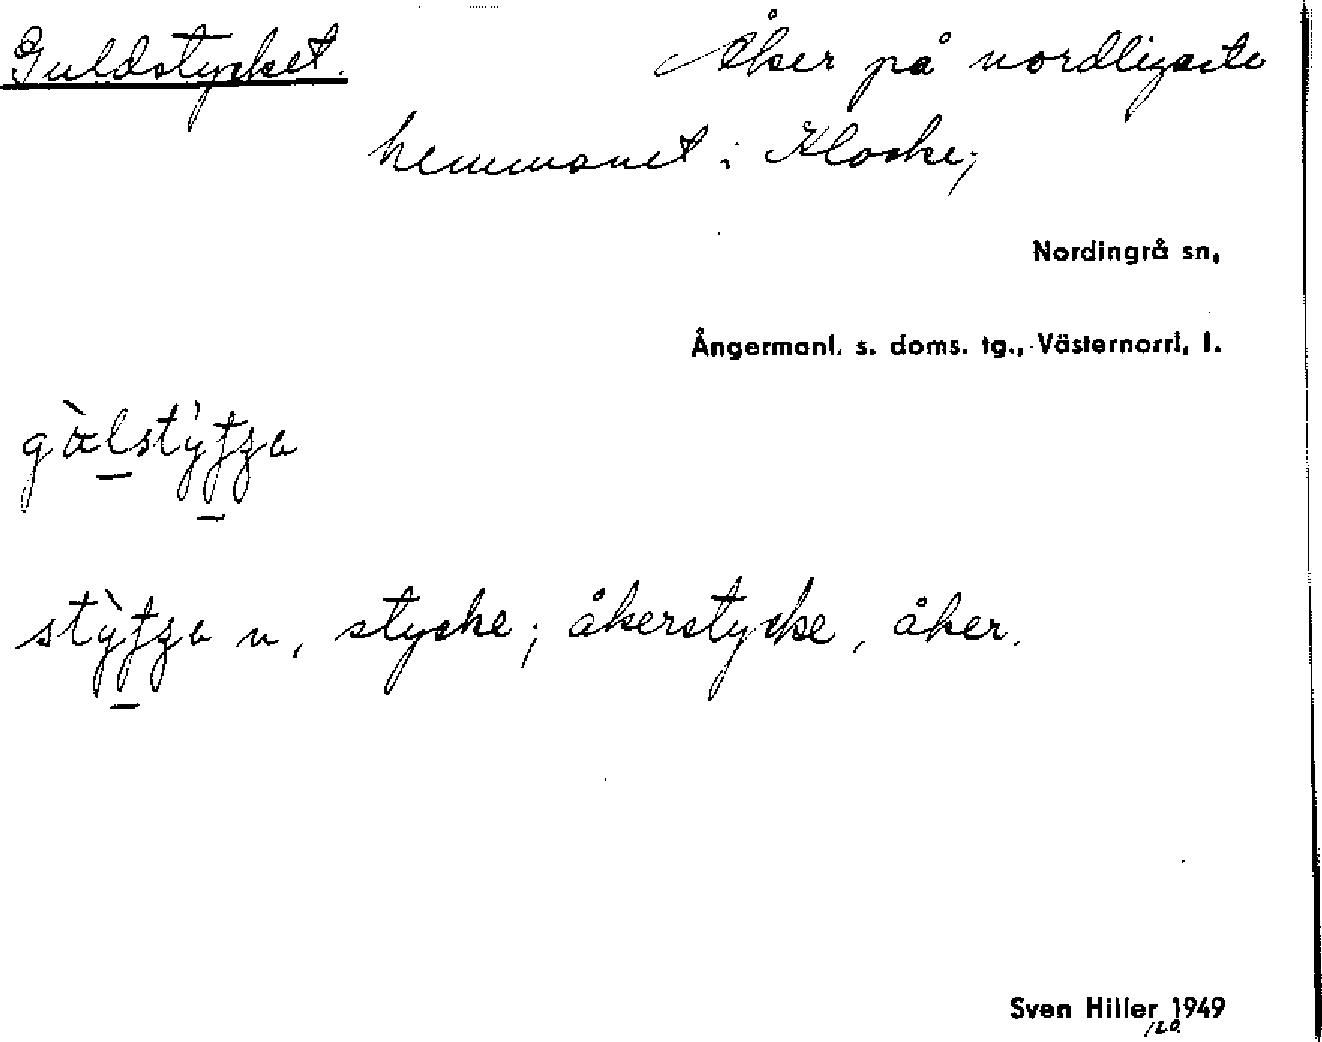 Guldstycket. Åker på nordligaste
hemmanet i Klocke;
Nordingrå sn,
Ångermanl. s. doms. tg., Västernorrl. l.
stycke; åkerstycke, åker.
Sven Hiller 1949